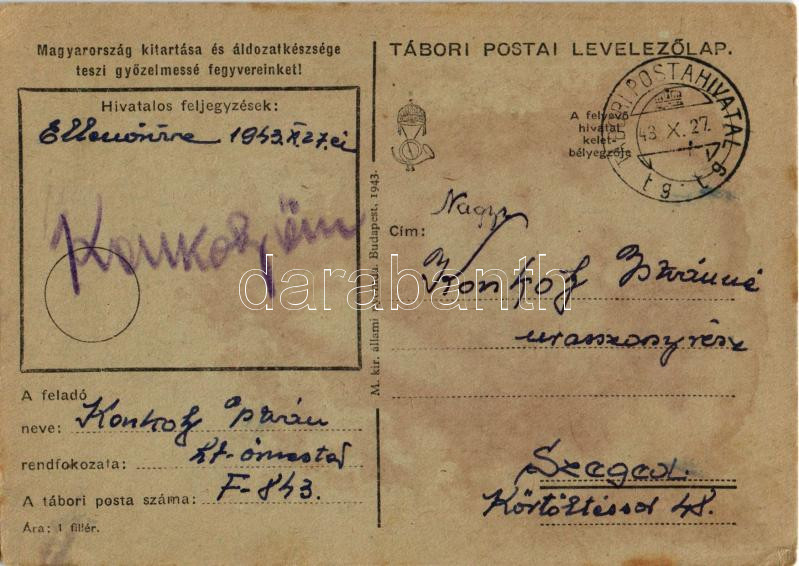 Magyarország kitartása és áldozatkészsége
teszi győzelmessé fegyvereinket!
Hivatalos feljegyzések:
Ellenőrizve 1943.X.27.én
Konkoly őm
A feladó
neve: Konkoly István
rendfokozata: szt. őrmester
A tábori posta száma: F-843.
Ára: 1 fillér.
M. kir. állami nyomda. Budapest, 1943.
TÁBORI POSTAI LEVELEZŐLAP.
A felvevő
hivatal
kelet-
bélyegzője
TÁBORI POSTAHIVATAL
43 X. 27.
Cím:
Nagy
Konkoly Istvánné
úrasszony rész
Szeged.
Körtöltéssor 48.
darabanth